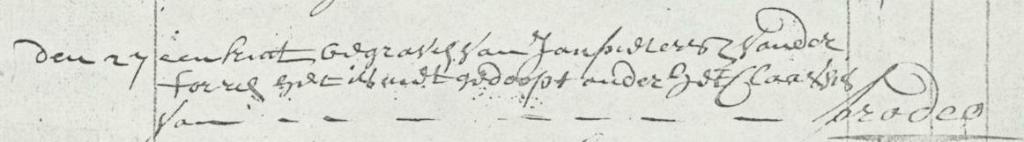 den 27 een kint begraven van Jan pieterss vander
torren het is niet gedoopt onder het Claas
van — — — — — — — prodeo